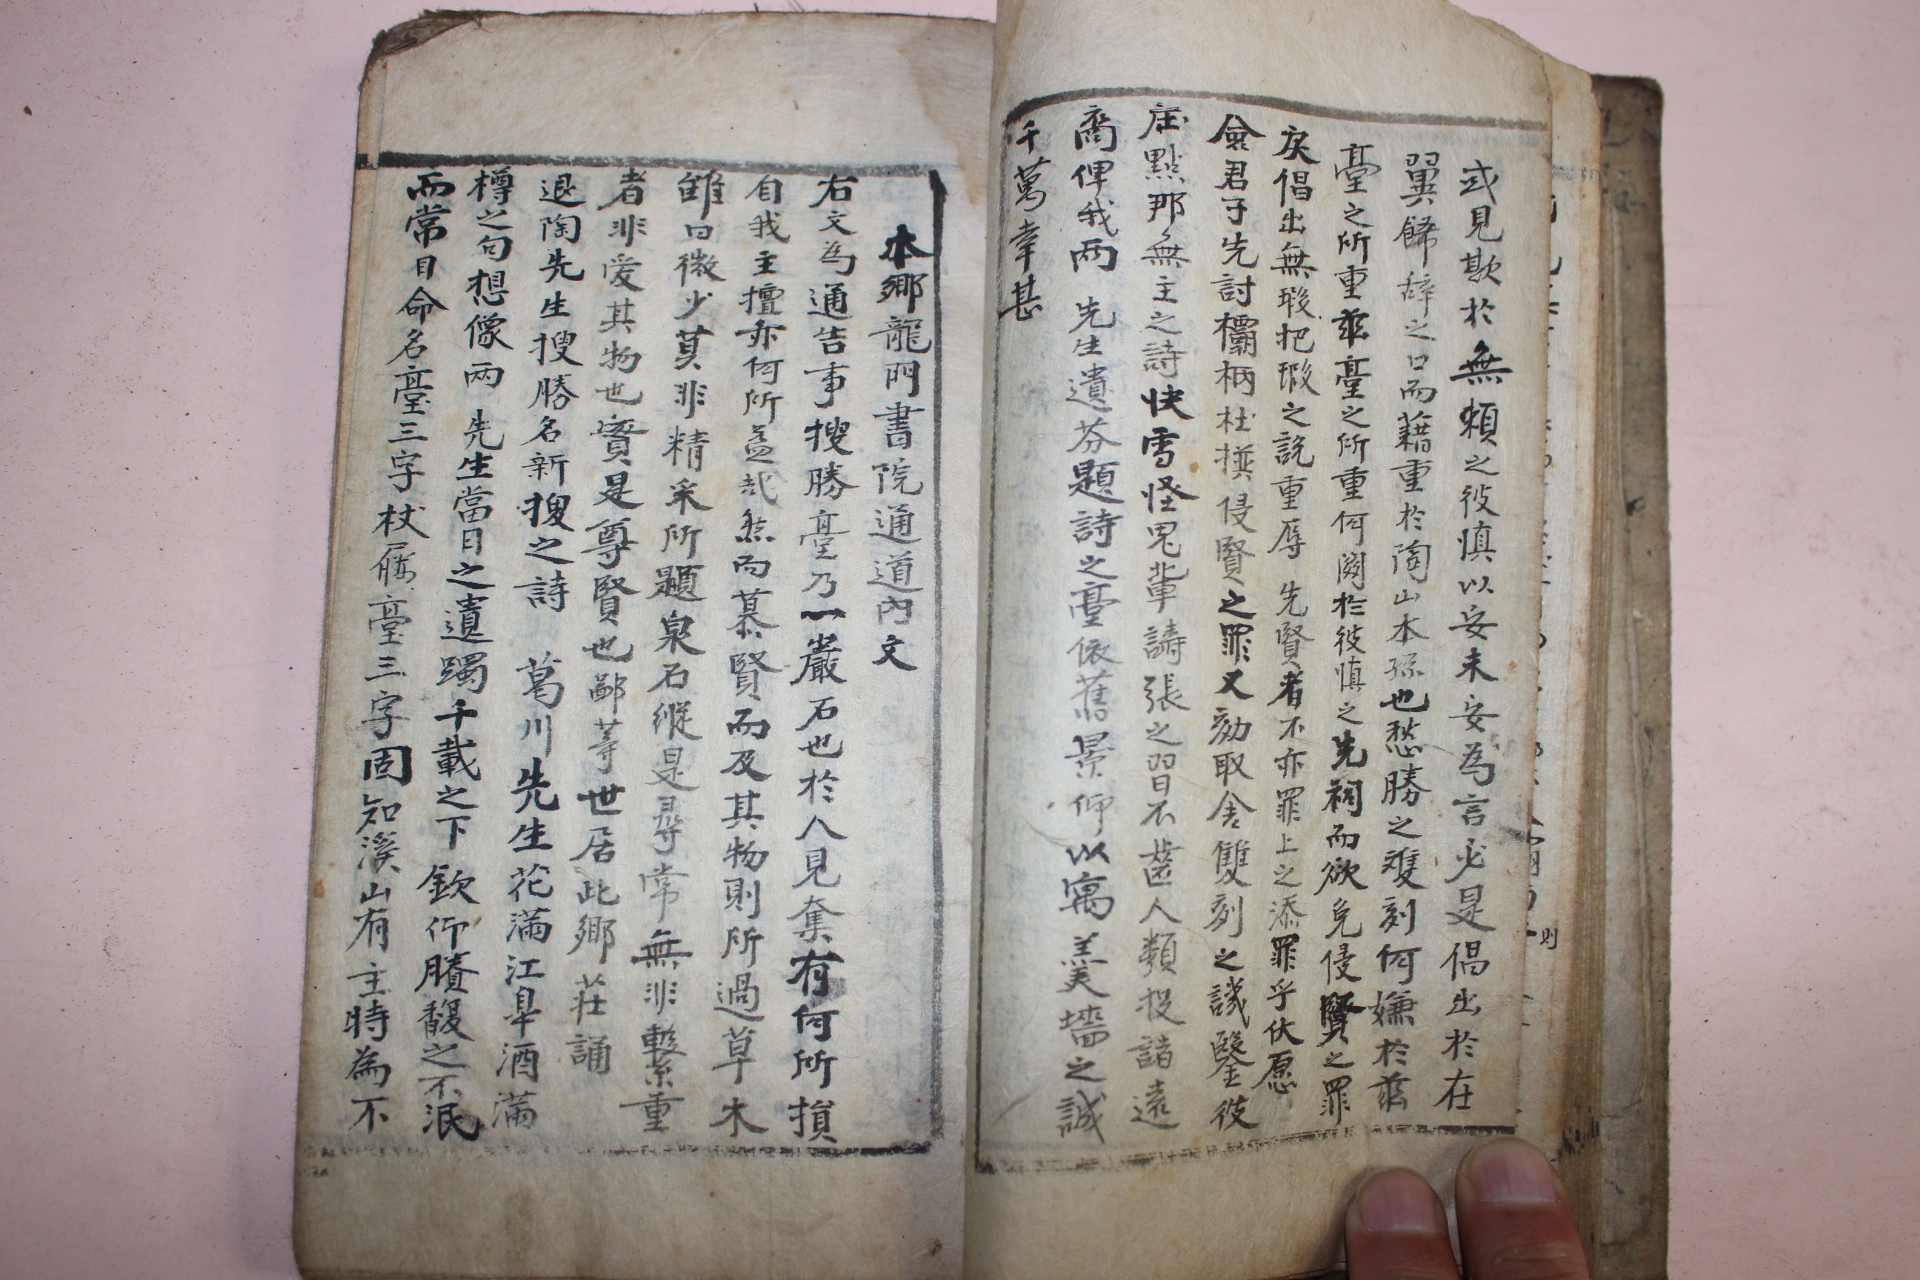 或見欺於無賴之彼愼以妄未妄爲言必是倡出於在
翼歸辭之口而藉重於陶山本孫也愁勝之雙刻何嫌於茲
臺之所重茲臺之所重何關於彼愼之先祠而欲免侵賢之罪
戾倡出無瑕把瑕之說重辱 先賢者不亦罪上之添罪乎伏愿
僉君子先討欛柄杜撰侵賢之罪又劾取舍雙刻之譏鑒彼
點那無主之詩快雪怪鬼輩譸張之習不齒人類投諸遠
裔俾我兩 先生遺芬題詩之臺依舊景仰以寓羹墻之誠
千萬幸甚
本鄕龍門書院通道內文
右文爲通告事搜勝臺乃一巖石也於人見奪有何所損
自我主擅亦何所益哉然而慕賢而及其物則所過草木
雖曰微少莫非精采所題泉石縱是尋常無非繫重
者非愛其物也實是尊賢也鄙等世居此鄕莊誦
退陶先生搜勝名新搜之詩 葛川先生花滿江皐酒滿
樽之句想像兩 先生當日之遺躅千載之下欽仰賸馥之不泯
而常目命名臺三字杖屨臺三字固知溪山有主時爲不
則